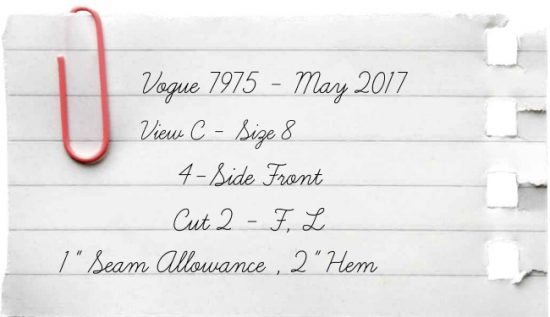 Vogue 7975 - May 2017
View C - Size 8
4-Side Front
Cut 2 - F, L
1" Seam Allowance , 2" Hem